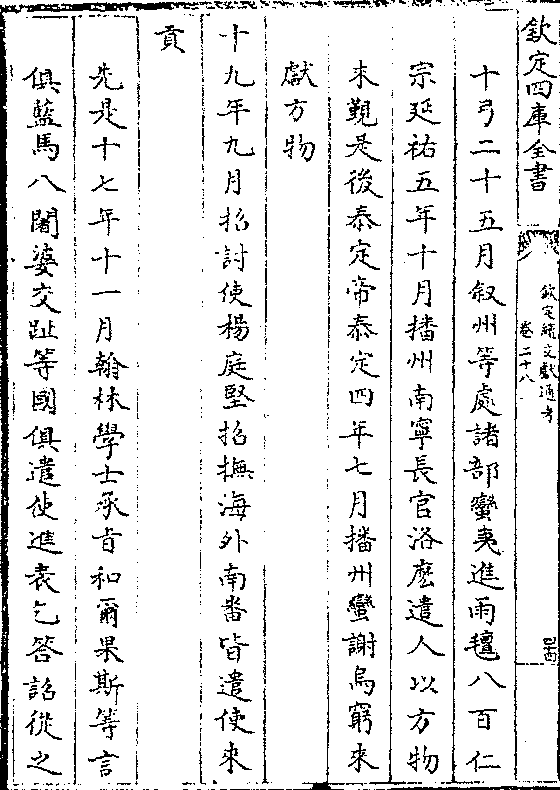 欽定四庫全書
欽定續文獻通考
卷二十八
十弓二十五月叙州等處諸部蠻夷進雨氊八百仁
宗延祐五年十月播州南寧長官洛麽遣人以方物
來覲是後泰定帝泰定四年七月播州蠻謝烏窮來
獻方物
十九年九月招討使楊庭堅招撫海外南番皆遣使來
貢
先是十七年十一月翰林學士承旨和爾果斯等言
俱藍馬八闍婆交趾等國俱遣使進表乞答詔從之